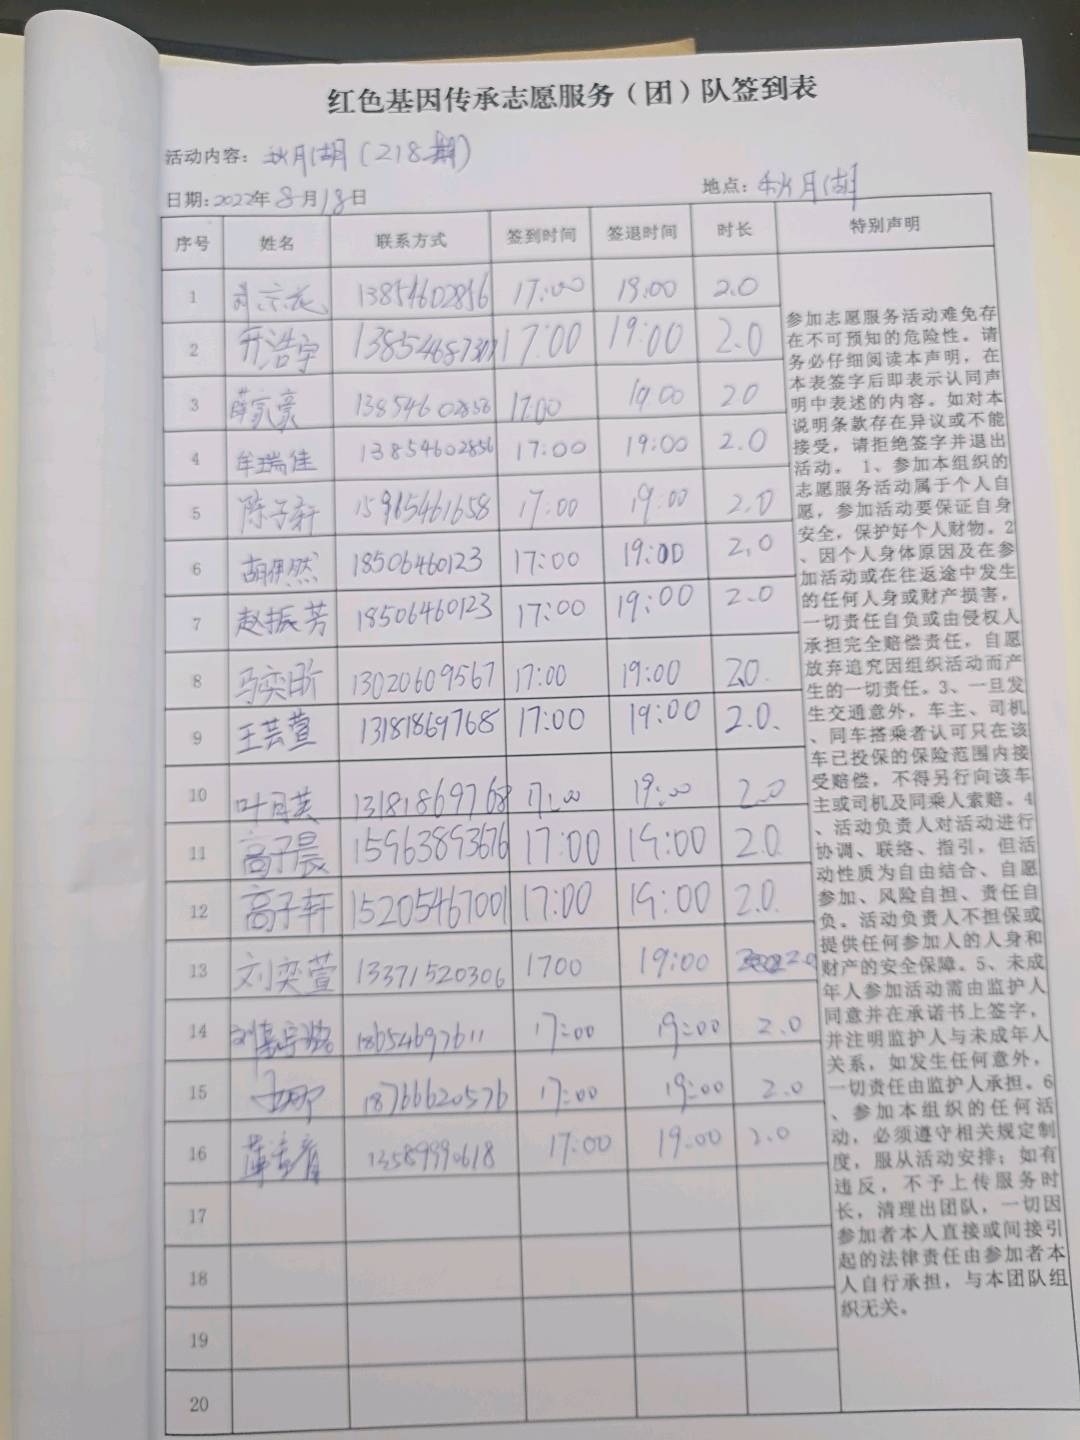 红色基因传承志愿服务（团）队签到表
活动内容：秋月湖（218期）
日期：2022年8月18日 地点：秋月湖
序号 姓名 联系方式 签到时间 签退时间 时长 特别声明
1 13854602856 17:00 19:00 2.0
2 乔浩宇 17:00 19:00 2.0
3 薛家豪 13854602856 17:00 19:00 2.0
4 牟瑞佳 13854602856 17:00 19:00 2.0
5 陈子轩 15965461658 17:00 19:00 2.0
6 胡伊然 18506460123 17:00 19:00 2.0
7 赵振芳 18506460123 17:00 19:00 2.0
8 马奕昕 13020609567 17:00 19:00 2.0
9 王芸萱 13181869768 17:00 19:00 2.0
10 叶月英 13181869768 17:00 19:00 2.0
11 高子晨 15963893676 17:00 19:00 2.0
12 高子轩 15205467001 17:00 19:00 2.0
13 刘奕萱 13371520306 1700 19:00 2.0
14 18654697611 17:00 19:00 2.0
15 18766620576 17:00 19:00 2.0
16 13589990618 17:00 19:00 2.0
17
18
19
20
参加志愿服务活动难免存
在不可预知的危险性。请
务必仔细阅读本声明，在
本表签字后即表示认同声
明中表述的内容。如对本
说明条款存在异议或不能
接受，请拒绝签字并退出
活动。 1、参加本组织的
志愿服务活动属于个人自
愿，参加活动要保证自身
安全，保护好个人财物。2
、因个人身体原因及在参
加活动或在往返途中发生
的任何人身或财产损害，
一切责任自负或由侵权人
承担完全赔偿责任，自愿
放弃追究因组织活动而产
生的一切责任。3、一旦发
生交通意外，车主、司机
、同车搭乘者认可只在该
车已投保的保险范围内接
受赔偿，不得另行向该车
主或司机及同乘人索赔。4
、活动负责人对活动进行
协调、联络、指引，但活
动性质为自由结合、自愿
参加、风险自担、责任自
负。活动负责人不担保或
提供任何参加人的人身和
财产的安全保障。5、未成
年人参加活动需由监护人
同意并在承诺书上签字，
并注明监护人与未成年人
关系，如发生任何意外，
一切责任由监护人承担。6
、参加本组织的任何活
动，必须遵守相关规定制
度，服从活动安排；如有
违反，不予上传服务时
长，清理出团队，一切因
参加者本人直接或间接引
起的法律责任由参加者本
人自行承担，与本团队组
织无关。